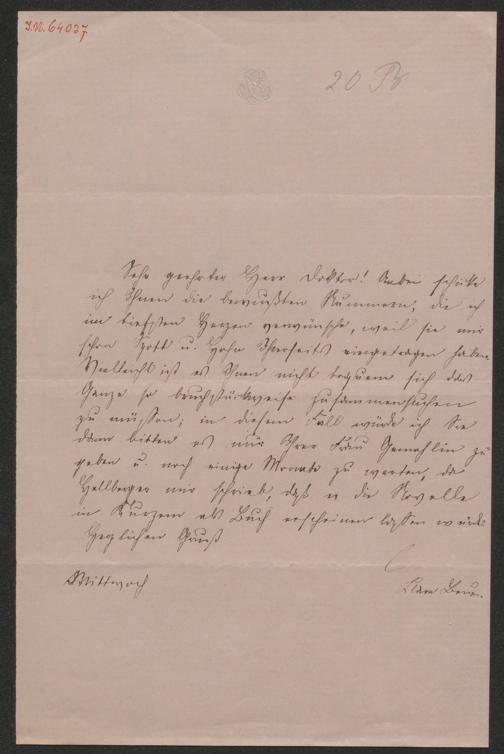 I.N. 64037
20 B
Sehr geehrter Herr Doktor! Anbei schicke
ich Ihnen die bewußten Nummern, die ich
im tiefsten Herzen verwünsche, weil sie mir
schon Spott u. Hohn Ihrerseits eingetragen haben.
Vielleicht ist es Ihnen nicht bequem sich das
Ganze so bruchstückweise zusammensuchen
zu müssen; in diesem Fall würde ich Sie
dann bitten es nur Ihrer Frau Gemahlin zu
geben u. noch einige Monate zu warten, da
Hallberger mir schrieb, daß er die Novelle
in Kurzem als Buch erscheinen lassen würde.
Herzlichen Gruß
Mittwoch